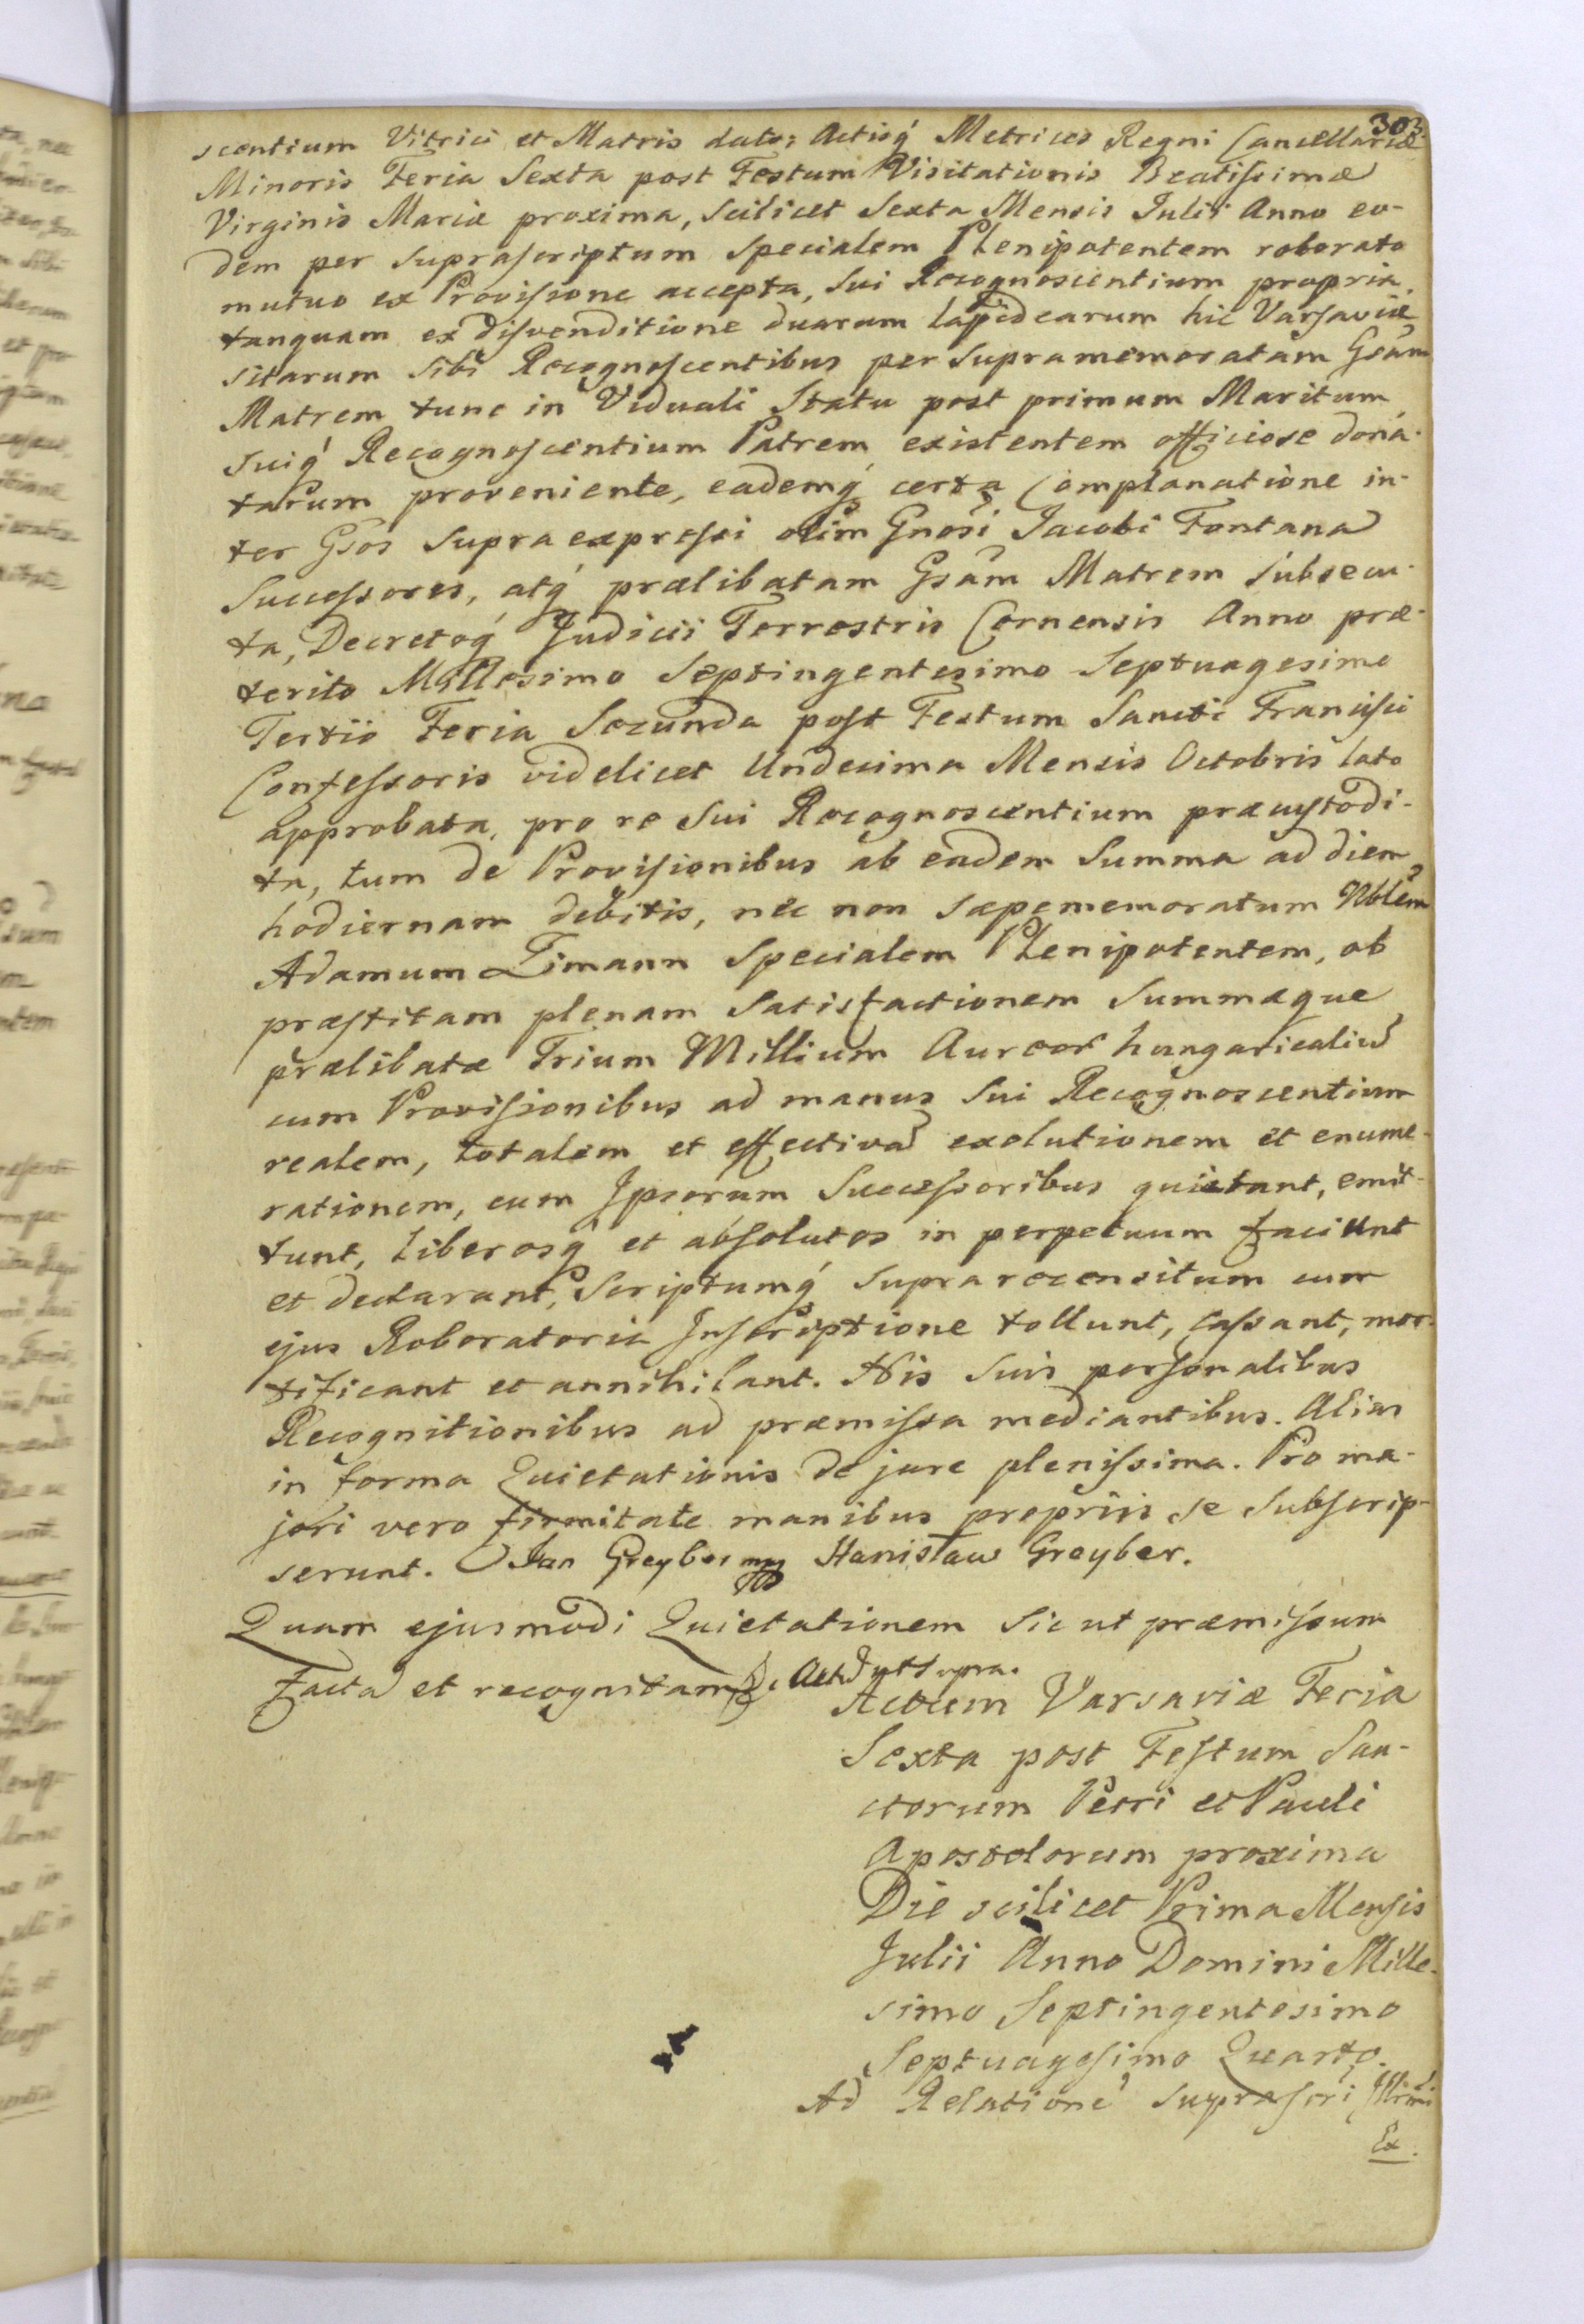 303
scentium Vitrici et Matris dato; Actisq́ Metrices Regni Cancellariæ
Minoris Feria Sexta post Festum Visitationis Beatissimæ
Virginis Mariæ proxima, scilicet Sexta Mensis Julii Anno eo-
dem per suprascriptum specialem Plenipotentem roborato
mutuo ex Provisione accepta, sui Recognoscentium propria,
tanquam ex Disvenditione duarum lapidearum hic Varsaviæ
sitarum sibi Recognoscentibus per supramemoratam Gsam
Matrem tunc in Viduali Statu post primum Maritum,
suiq́ Recognoscentium Patrem existentem officiose dona-
tarum proveniente, eademq́ certa Complanatione in-
ter Gsos supra expressi olim Gnosi Jacobi Fontana
Successores, atq́ prælibatam Gsam Matrem subsecu-
ta, Decretoq́ Judicii Terrestris Cernensis Anno præ-
terito Millesimo Septingentesimo Septuagesimo
Tertio Feria Secunda post Festum Sancti Francisci
Confessoris videlicet Undecima Mensis Octobris lato
approbata, pro re sui Recognoscentium præcustodi-
ta, tum de Provisionibus ab eadem Summa ad diem
hodiernam debitis, nec non sæpememoratum Nblem
Adamum Limann specialem Plenipotentem, ob
præstitam plenam satisfactionem summæque
prælibatæ Trium Millium Aureor hungaricaliu
cum Provisionibus ad manus sui Recognoscentium
realem, totalem et effectiva exolutionem et enume-
rationem, cum Ipsorum Successoribus quietant, emit-
tunt, liberosq́ et absolutos in perpetuum faciunt
et declarant, Scriptumq́ supra recensitum cum
ejus Roboratoria Inscriptione tollunt, cassant, mor-
tificant et annihilant. His suis personalibus
Recognitionibus ad præmissa mediantibus. Alias
in forma Quietationis de jure plenissima. Pro ma-
jori vero firmitate manibus propriis se subscrip-
serunt. Jan Greyber mp Stanisław Greyber.
Quam ejusmodi Quietationem sic ut præmissum
facta et recognitam Act ut supra.
Actum Varsaviæ Feria
Sexta post Festum San-
ctorum Petri et Pauli
Apostolorum proxima
Die scilicet Prima Mensis
Julii Anno Domini Mille-
simo Septingentesimo
Septuagesimo Quarto.
Ad Relatione suprascri Illrmi
Ex.